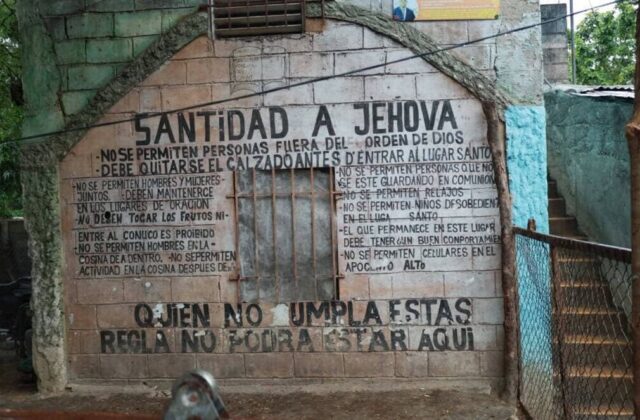 SANTIDAD A JEHOVA
-NO SE PERMITEN PERSONAS FUERA DEL ORDEN DE DIOS
-DEBE QUITARSE EL CALZADO ANTES D'ENTRAR AL LUGAR SANTO
-NO SE PERMITEN HOMBRES Y MUJERES
JUNTOS DEBEN MANTENERCE
EN LOS LUGARES DE ORACION
NO DEBEN TOCAR LOS FRUTOS NI
ENTRE AL CONUCO ES PROIBIDO
-NO SE PERMITEN HOMBRES EN LA
COSINA DEADENTRO. -NO SEPERMITEN
ACTIVIDAD EN LA COSINA DESPUES DE
-NO SE PERMITEN PERSONAS QUE NO
SE ESTE GUARDANDO EN COMUNION
-NO SE PERMITEN RELAJOS
-NO SE PERMITEN NIÑOS DESOBEDIEN
EN EL LUGA SANTO
-EL QUE PERMANECE EN ESTE LUGAR
DEBE TENER UN BUEN COMPORTAMIEN
-NO SE PERMITEN CELULARES EN EL
APOCENTO ALTO
QUIEN NO CUMPLA ESTAS
REGLA NO PODRA ESTAR AQUI